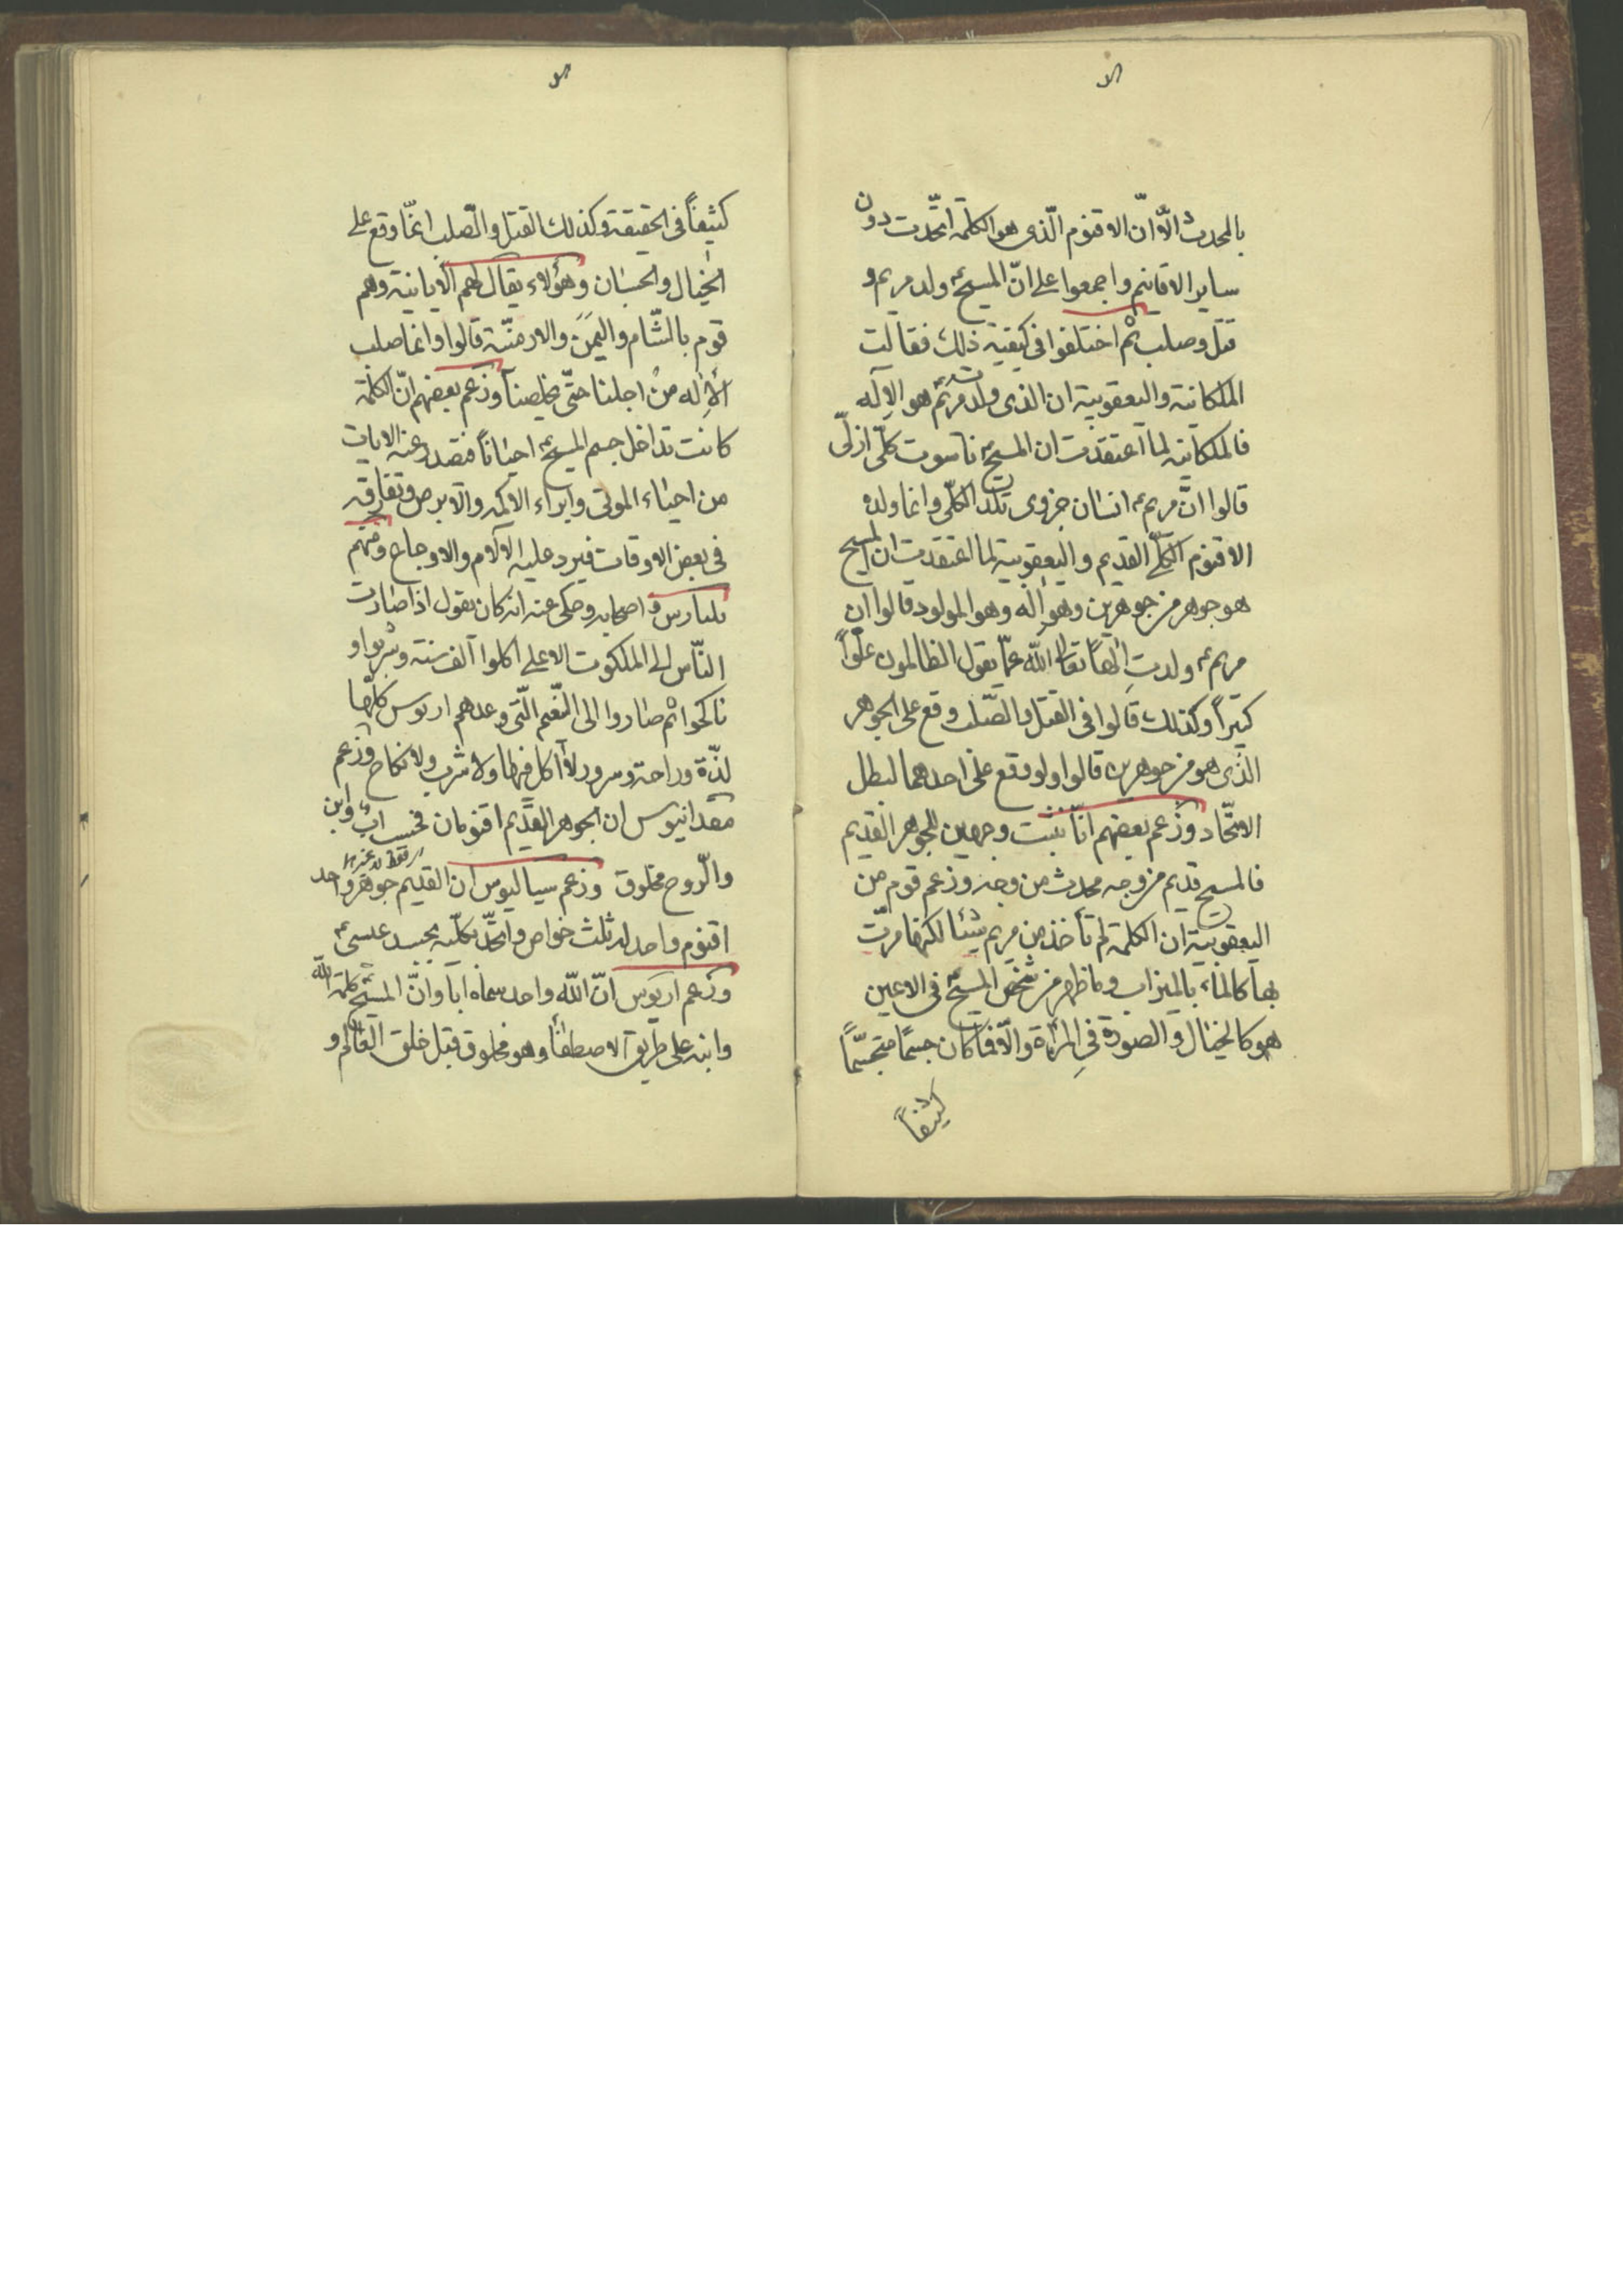 بالمحدث الّا انّ الاقنوم الّذى هو الكلمة اتّحدت دون
ساير الاقانيم واجمعوا على انّ المسيحؑ ولد مريم و
قتل وصلب ثم اختلفوا فى كيفيّة ذلك فقالت
الملكانية واليعقوبية ان الذى ولدت مريم هو الإله
فالملكانية لما اعتقدت ان المسيحؑ ناسوت كلّى ازلّى
قالوا انّ مريمؑ انسان جزوى لا تلد الكلّى وانما ولده
الاقنوم الكلّى القديم واليعقوبية لما اعتقدت ان المسيح
هو جوهر من جوهرين وهو اله وهو المولود قالوا ان
مريمؑ ولدت الهًا تعالى الله عمّا يقول الظالمون علوًّا
كبيراً وكذلك قالوا فى القتل والصّلب وقع على الجوهر
الذى هو من جوهرين قالوا ولو وقع على احدهما لبطل
الاتّحاد وزعم بعضهم انّا نثبت وجهين للجوهر القديم
فالمسيح قديم من وجه محدث من وجه وزعم قوم من
اليعقوبية ان الكلمة لم تأخذ من مريم شيئا لكنها مرّت
بها كالماء بالميزاب وما ظهر من شخص المسيحؑ فى الاعين
هو كالخيال والصورة فى المرآة والّا فما كان جسمًا متجسّمًا
كثيفاً
كثيفاً فى الحقيقة وكذلك القتل والصّلب انمّا وقع على
الخيال والحسبان وهؤلاء يقال لهم الاليانية وهم
قوم بالشّام واليمن والارمنيّة قالوا وانما صلب
الاله من اجلنا حتّى يخلصنا وزعم بعضهم انّ الكلمة
كانت تداخل جسم المسيحؑ احياناً فتصدر عنه الايات
من احياء الموتى وابراء الاكمه والابرص وتفارقه
فى بعض الاوقات فيرد عليه الآلام والاوجاع ومنهم
بليارس واصحابه وحكى عنه انه كان يقول اذا صارت
النّاس الى الملكوت الاعلى اكلوا الف سنة وشربوا و
ناكحوا ثم صاروا الى النّعيم الّتى وعدهم اريوس كلّها
لذّة وراحة وسرور لا اكل فيها ولا شرب ولا نكاح وزعم
مقدانيوس ان الجوهر القديم اقنومان فحسب اب وابن
والرّوح مخلوق وزعم سباليوس ان القديم جوهر واحد
اقنوم واحد له ثلث خواص واتحدّ بكلّيته بجسد عيسىؑ
وزعم اريوس انّ الله واحد سماه ابا وانّ المسيح كلمة الله
وابنه على طريق الاصطفاء وهو مخلوق قبل خلق العالم و